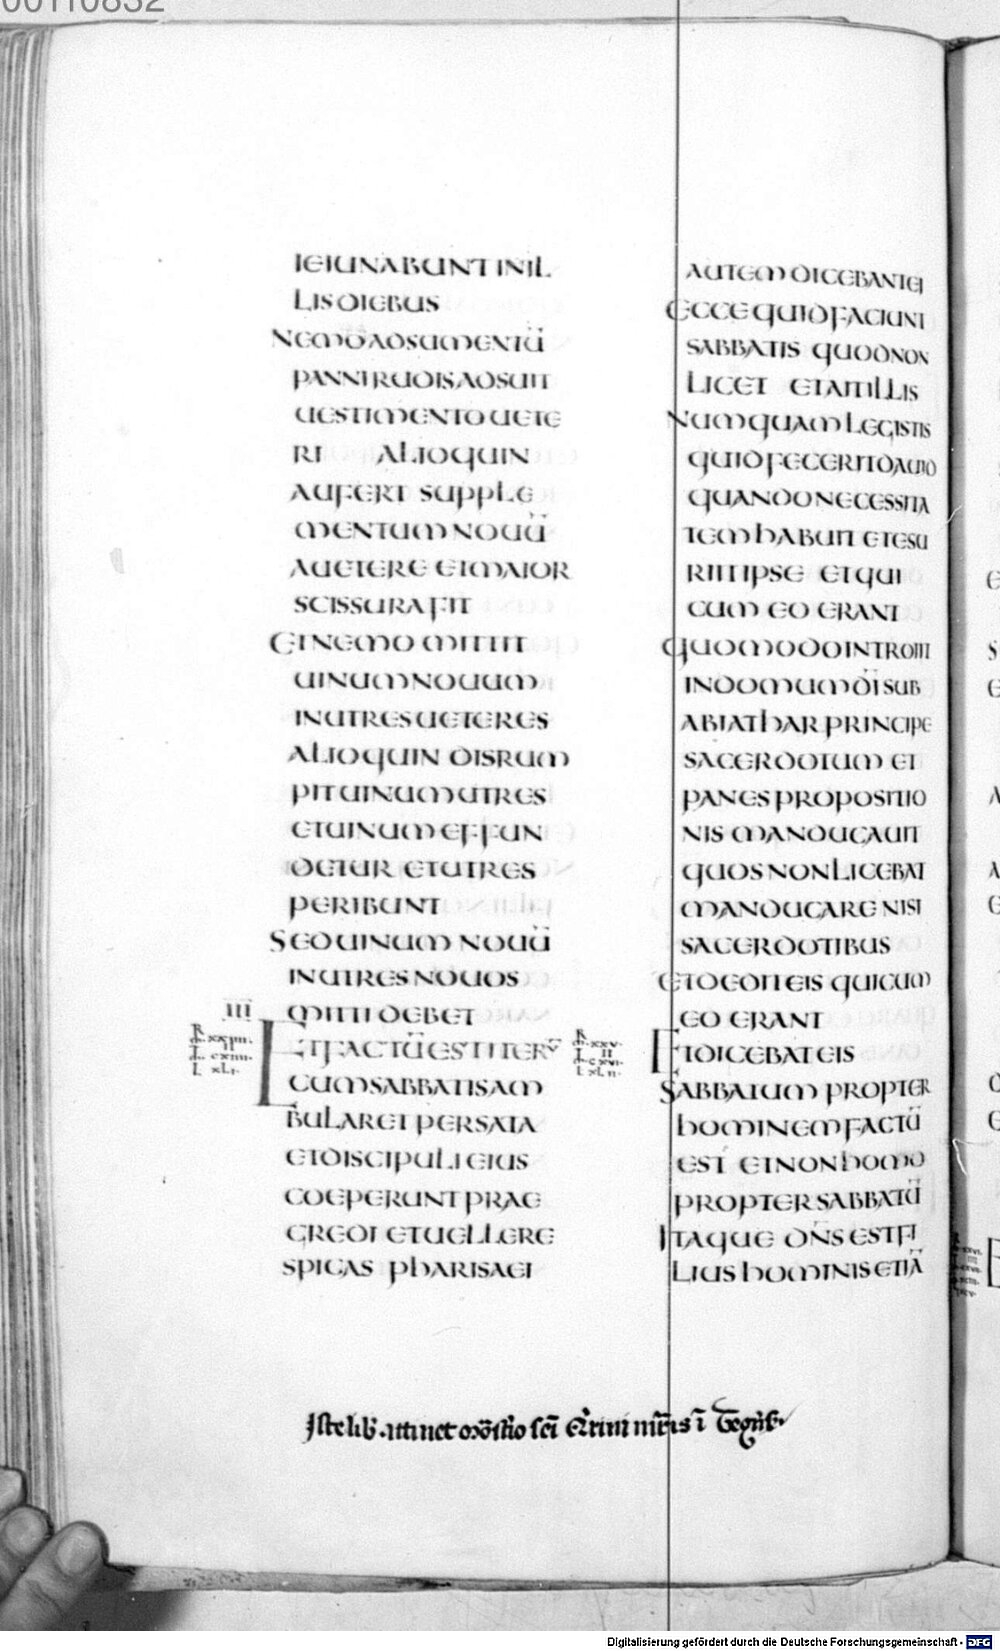 IEIUNABUNT IN IL
LIS DIEBUS
NEMO ADSUMENTŪ
PANNI RUDIS ADSUIT
UESTIMENTO UETE
RI ALIOQUIN
AUFERT SUPPLE
MENTUM NOUŪ
A UETERE ET MAIOR
SCISSURA FIT
ET NEMO MITTIT
UINUM NOUUM
IN UTRES UETERES
ALIOQUIN DISRUM
PIT UINUM UTRES
ET UINUM EFFUN
DETUR ET UTRES
PERIBUNT
SED UINUM NOUŪ
IN UTRES NOUOS
III MITTI DEBET
ET FACTŪ EST ITERV̄
CUM SABBATIS AM
BULARET PER SATA
ET DISCIPULI EIUS
COEPERUNT PRAE
GREDI ET UELLERE
SPICAS PHARISAEI
AUTEM DICEBANT EI
ECCE QUID FACIUNT
SABBATIS QUOD NON
LICET ET AIT ILLIS
NUMQUAM LEGISTIS
QUID FECERIT DAUID
QUANDO NECESSITA
TEM HABUIT ET ESU
RIIT IPSE ET QUI
CUM EO ERANT
QUOMODO INTROIIT
IN DOMUM DĪ SUB
ABIATHAR PRINCIPE
SACERDOTUM ET
PANES PROPOSITIO
NIS MANDUCAUIT
QUOS NON LICEBAT
MANDUCARE NISI
SACERDOTIBUS
ET DEDIT EIS QUI CUM
EO ERANT
ET DICEBAT EIS
SABBATUM PROPTER
HOMINEM FACTŪ
EST ET NON HOMO
PROPTER SABBATŪ
ITAQUE DN̄S EST FI
LIUS HOMINIS ETIĀ